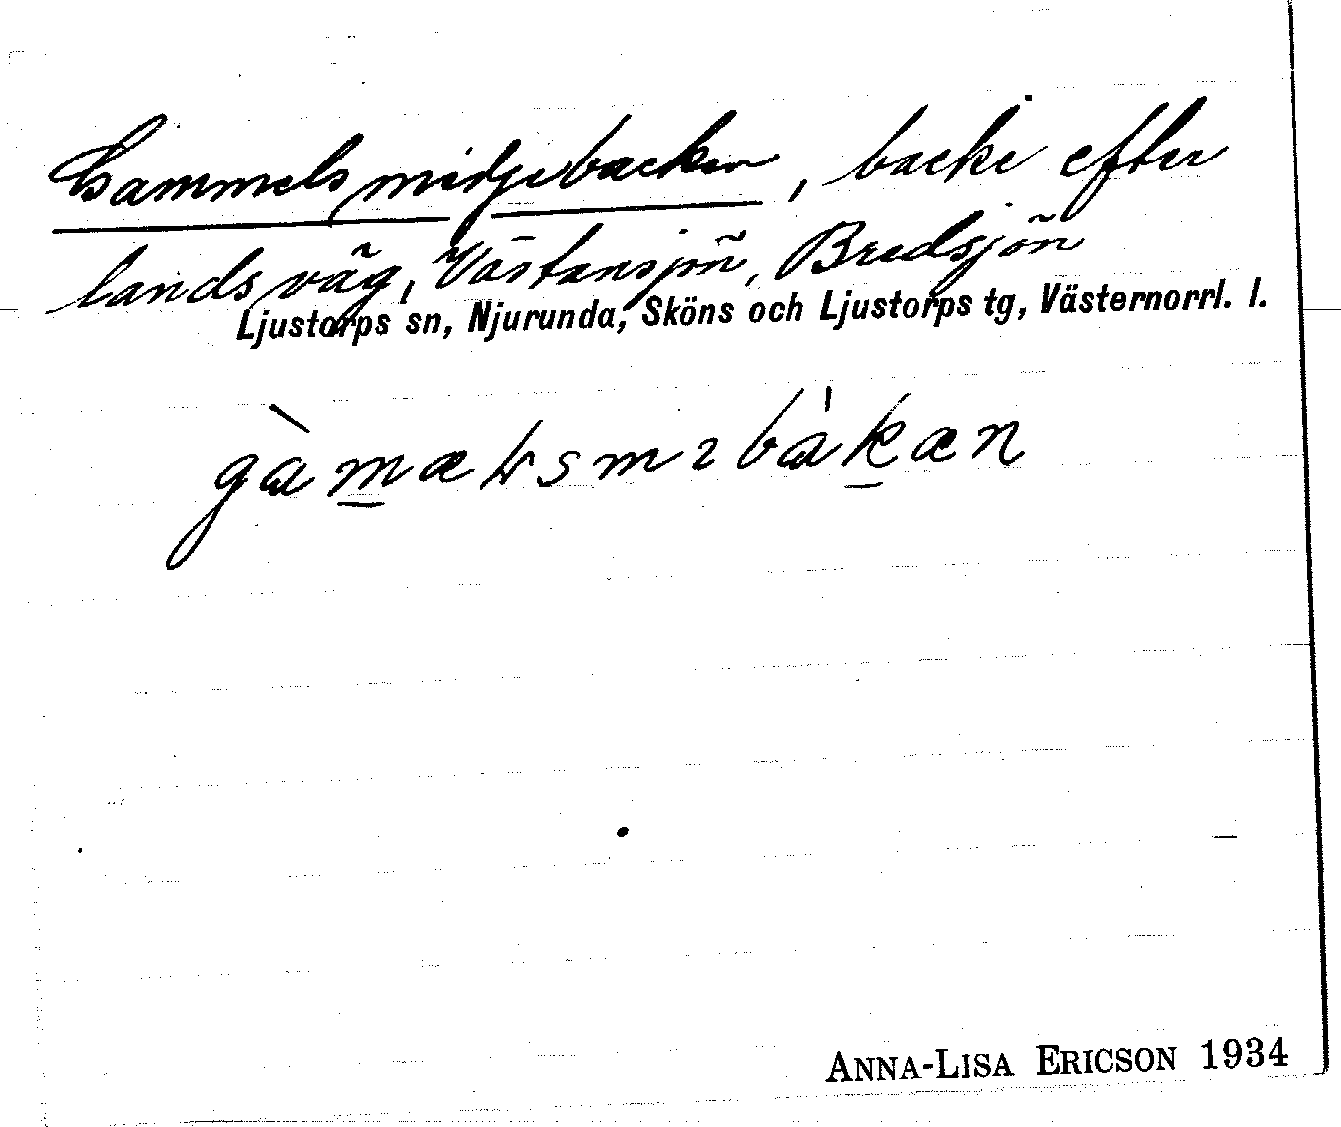 Gammelsmidjebacken, backe efter
landsväg, Västansjön, Bredsjön
Ljustorps sn, Njurunda, Sköns och Ljustorps tg, Västernorrl. l.
gàmælsmɩbàkæn
ANNA-LISA ERICSON 1934